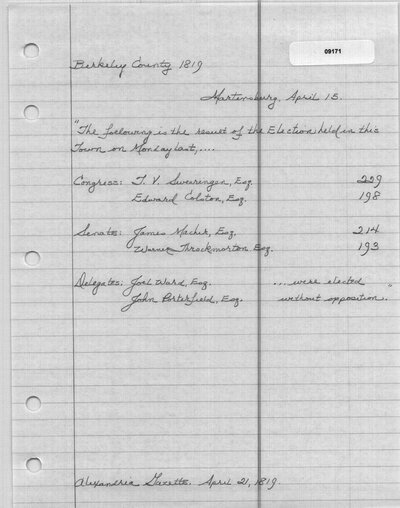 09171
Berkeley County 1819
Martinsburg, April 15.
"The following is the result of the Election held in this
Town on Monday last,....
Congress: T. V. Swearengen, Esq. 229
Edward Colston, Esq. 198
Senate: James Machir, Esq. 214
Warner Throckmorton Esq. 193
Delegates: Joel Ward, Esq. ... were elected
John Porterfield, Esq. without opposition."
Alexandria Gazette. April 21, 1819.